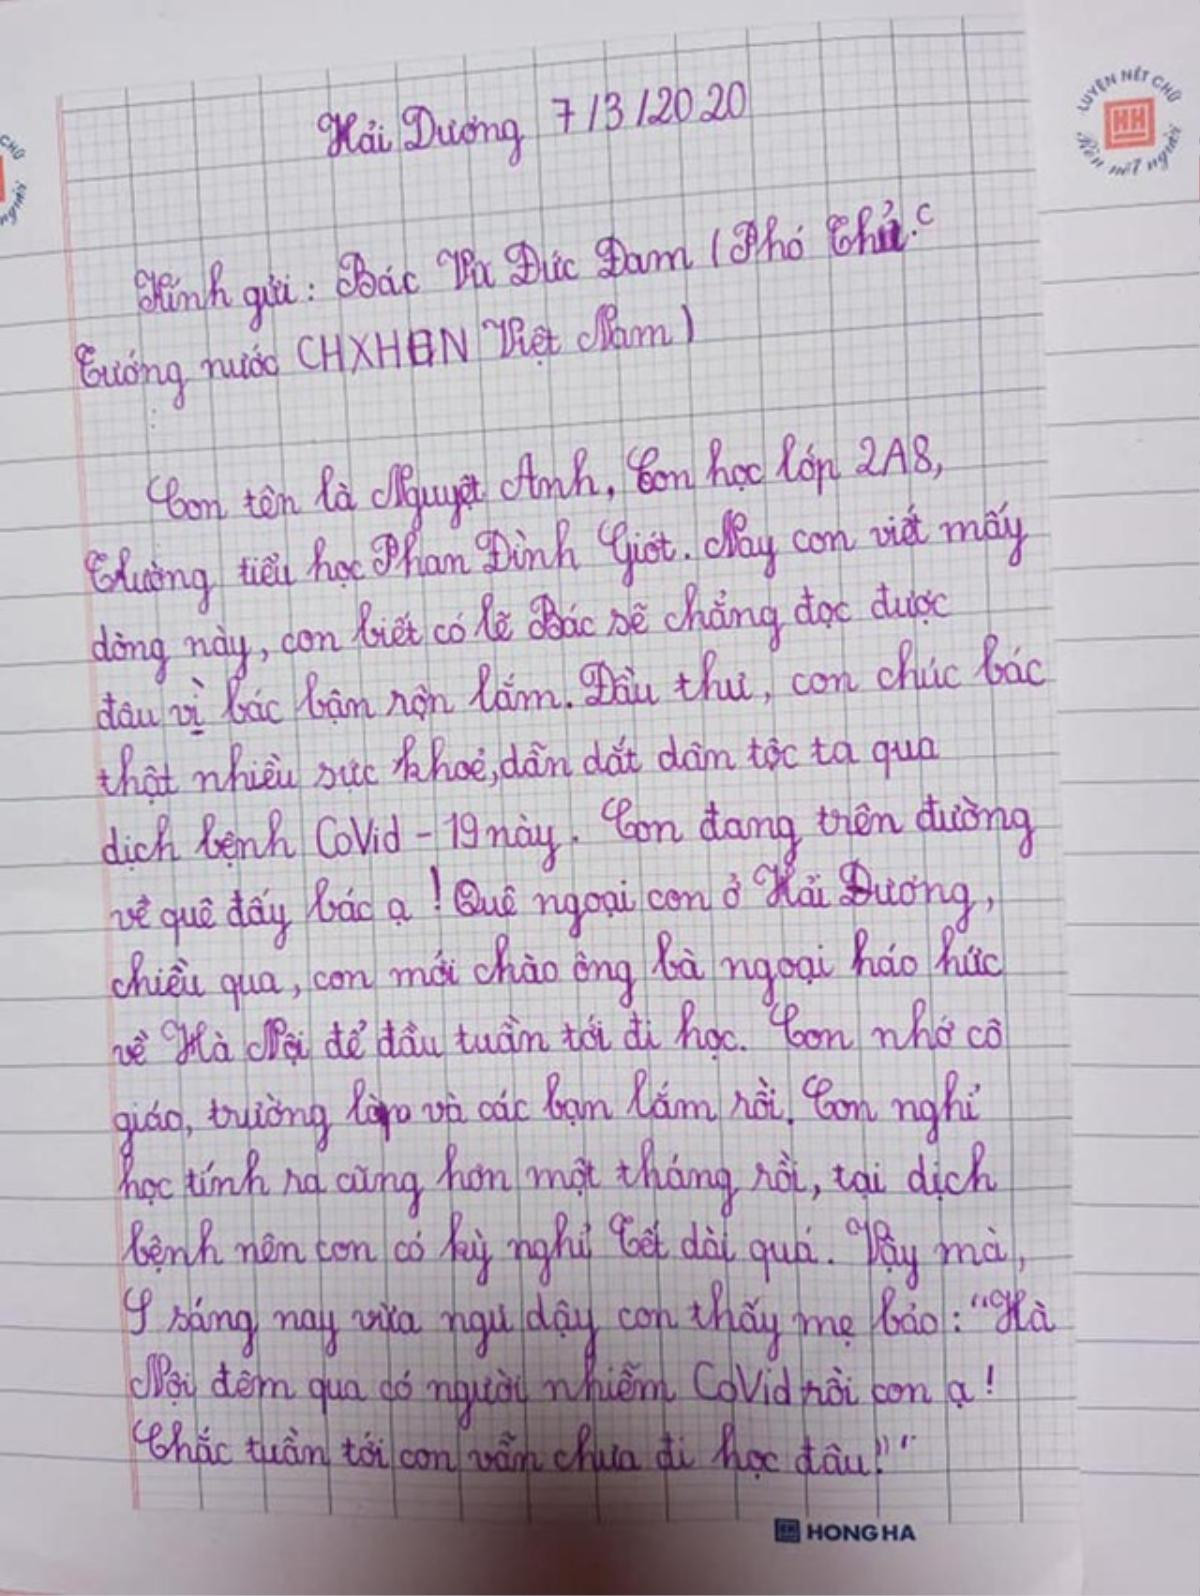 Hải Dương 7/3/2020
LUYỆN NÉT CHỮ
HH
Rèn nết người
CHỮ
người
Kính gửi: Bác Vũ Đức Đam (Phó Thủ.
Tướng nước CHXHCN Việt Nam)
Con tên là Nguyệt Anh, Con học lớp 2A8,
Trường tiểu học Phan Đình Giót. Nay con viết mấy
dòng này, con biết có lẽ Bác sẽ chẳng đọc được
đâu vì bác bận rộn lắm. Đầu thư, con chúc bác
thật nhiều sức khoẻ, dẫn dắt dâm tộc ta qua
dịch bệnh CoVid - 19 này. Con đang trên đường
về quê đấy bác ạ! Quê ngoại con ở Hải Dương,
chiều qua, con mới chào ông bà ngoại háo hức
về Hà Nội để đầu tuần tới đi học. Con nhớ cô
giáo, trường lớp và các bạn lắm rồi. Con nghỉ
học tính ra cũng hơn một tháng rồi, tại dịch
bệnh nên con có kỳ nghỉ Tết dài quá. Vậy mà,
sáng nay vừa ngu dậy con thấy mẹ bảo: "Hà
Nội đêm qua có người nhiễm CoVid rồi con ạ!
Chắc tuần tới con vẫn chưa đi học đâu!"
HONG HA